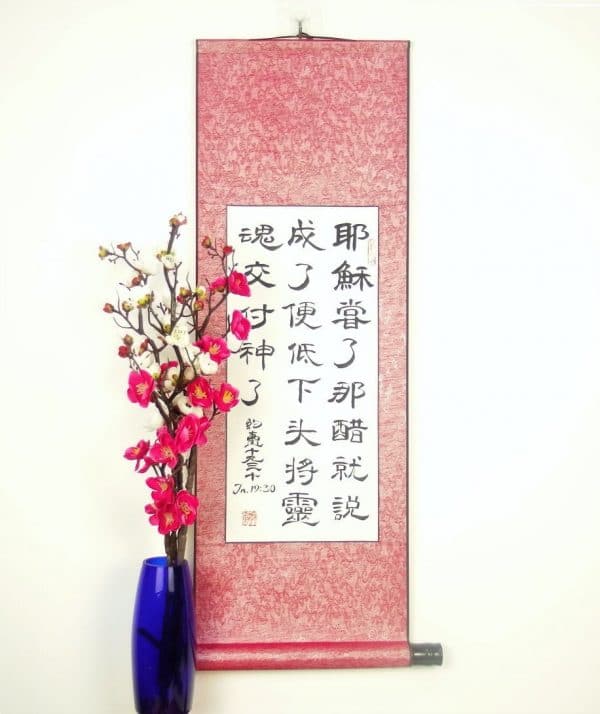 耶穌嘗了那醋就說
成了便低下头将靈
魂交付神了
約翰十九三十
Jn.19:30